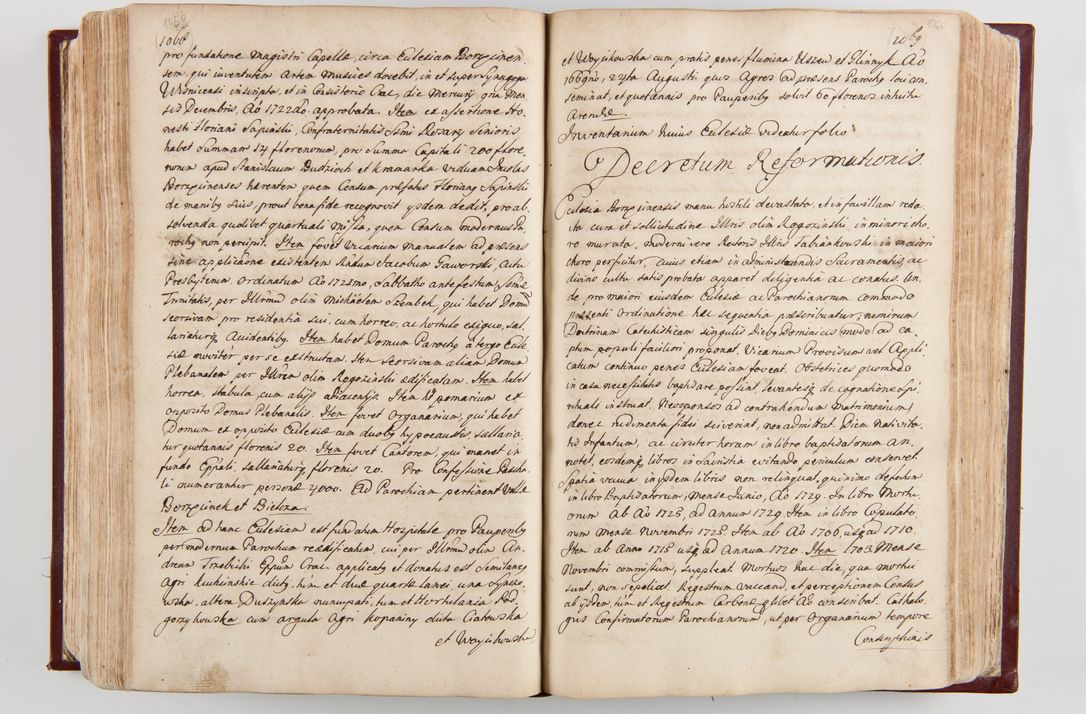 1068
pro fundatione Magistri Capellæ, circa Eclesiam Borzęcinen-
sem, qui inventutem Artem Musices docebit, in et super Synagoga
Wisnicensi inscripta, et in Consistorio Crac. die Mercurij 9na Men-
sis Decembris, Ao 1722do. approbata. Item ex assertione Ho-
nesti Floriani Sapinski, Confraternitatis Ssmi Rosary Senioris
habet Summam 14 florenorum, pro Summa Capitali 200 flore-
norum apud Stanislaum Dudzioch et Kramarka viduam Incolas
Borzęcinenses hærentem quem Censum præfatus Florianq Sapinski
de manibq suis, prout bona fide recognovit ijsdem dedit, pro ab-
solvenda qudlibet quartuali Missa, quem Censum modernus Pa-
rochq non percipit. Item fovet Vicarium manualem ad præsens
sine applicaone existentem Rndum Jacobum Jaworski, actu
Presbyterum Ordinatum Ao 1725mo, Sabbatho ante festum Ssmæ
Trinitatis, per Illrmum olim Michaelem Szembek, qui habet Domum
seorsivam pro residentia sui, cum horreo, ac hortulo exiguo, sal-
lariaturq Accidentibq. Item habet Domum Parochq a tergo Ecle-
siæ noviter per se exstructam. Item seorsivam aliam Domum
Plebanalem per Illrem olim Rogozinski ædificatam. Item habet
horrea, stabula cum alijs adiacentijs. Item ht pomarium ex
opposito Domus Plebanalis. Item fovet Organarium, qui habet
Domum ex opposito Eclesiæ cum duobq hypocaustis, sallaria-
tur quotannis florenis 20. Item fovet Cantorem, qui manet in
fundo Eppali, sallariaturq florenis 20. Pro Confessione Pascha-
li numerantur personæ 4000. Ad Parochiam pertinent Villæ
Borzęcinek et Bielcza.
Item ad hanc Eclesiam est fundatum Hospitale pro Pauperibq
per modernum Parochum reædificatum, cui per Illrmum olim An-
dream Trzebicki Eppum Crac. applicatq et donatus est Semilaneq
Agri Kuchcinskie dictq, tum et duæ quartæ lanei, una
wska, altera Duszynska nuncupati, tum et Hortulania Pod-
gorzykowska cum argula Agri Kopaniny dicta Ciatowska
et Woycikowska
1069
et Woycikowska cum pratis penes flumina Uszew et Glinnyk Ao
1669no, 24ta Augusti quos Agros ad præsens Parochq loci con-
seminat, et quotannis pro Pauperibq solvit 60 florenos intuitu
Arendæ.
Inventarium huius Eclesiæ videatur folio
Decretum Reformationis.
Eclesia Borzęcinensis manu hostili devastata, et in favillam reda-
cta cura et sollicitudine Illris olim Rogozinski, in minori cho-
ro murata, moderni vero Rectoris Illris Fabiankowski in maiori
choro perficitur, cuius etiam in administrandis Sacramentis, ac
divino cultu satis probata apparet diligentia ac conatus. Un-
de pro maiori eiusdem Eclesiæ ac Parochianorum commodo
præsenti Ordinatione hæc sequentia præscribuntur, nimirum
Doctrinam Catechisticam singulis Diebq Dominicis modo ad ca-
ptum populi faciliori proponat. Vicarium Provisum vel Appli-
catum continuo penes Eclesiam foveat. Obstetrices quomodo
in casu necessitatis baptizare possint, levantesq de cognatione spi-
rituali instruat. Neosponsos ad contrahendum Matrimonium,
donec rudimenta fidei sciverint, non admittat. Diem nativita-
tis Infantum, ac circiter horam in libro baptisatorum an-
notet, eosdemq libros in Sacristia evitando periculum conservet.
Spatia vacua in ijsdem libris non relinquat, quinimo defectum
in libro Baptizatorum, Mense Junio, Ao 1729. In libro Mortu-
orum ab Ao 1728, ad Annum 1729. Item in libro Copulato-
rum Mense Novembri 1728. Item ab Ao 1706, usq ad 1710.
Item ab Anno 1718 usq ad Annum 1720. Item 1703 Mense
Novembri commissum, suppleat. Mortuos hac die, qua mortui
sunt, non sepeliat. Regestrum vaccarum, et perceptionem Census
ab ijsdem, tum et Regestrum Carbonæ qdlibet Ao conscribat. Cathalo-
gus Confirmatorum Parochianorum, ut per Organarium tempore
Conscriptionis